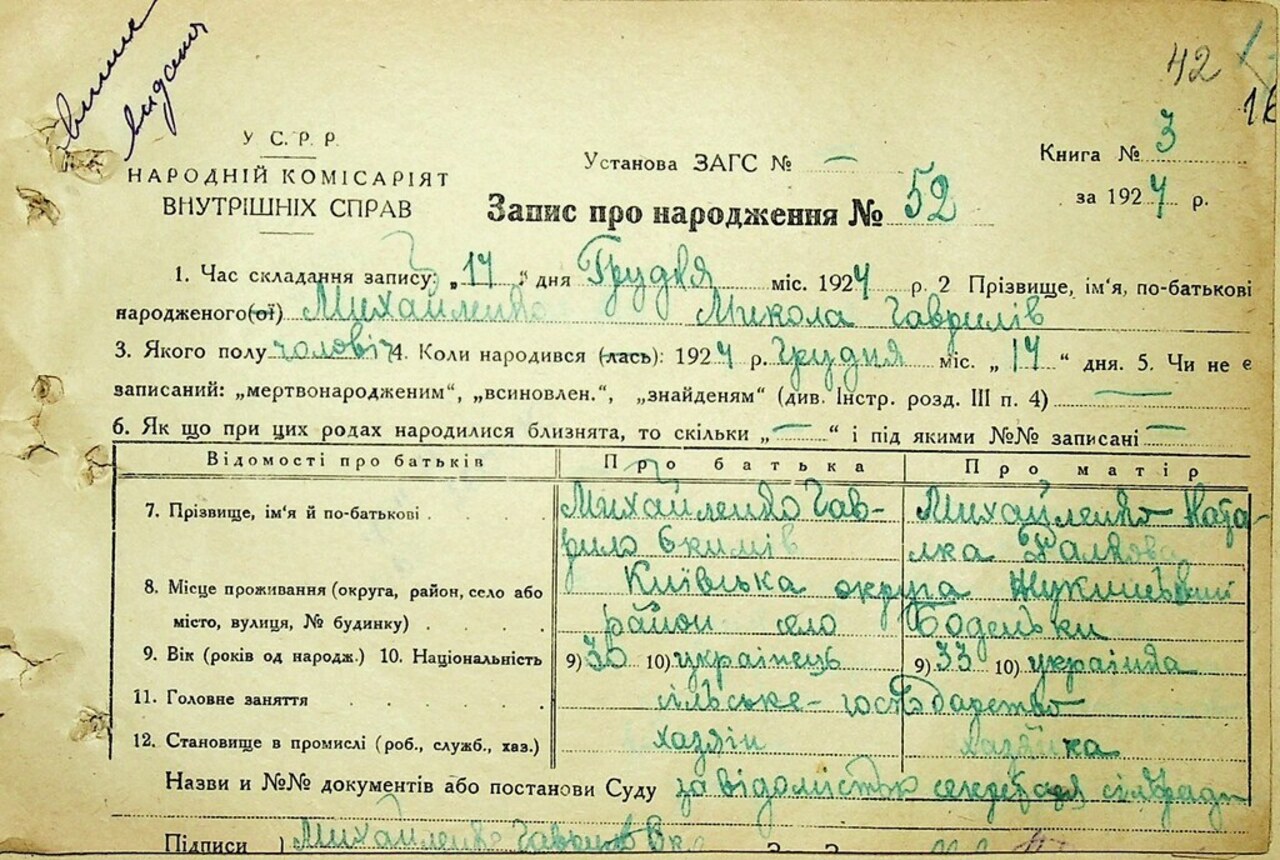 42
виписк
видано
У С. Р. Р.
НАРОДНІЙ КОМІСАРІЯТ
ВНУТРІШНІХ СПРАВ
Установа ЗАГС № —
Книга № 3
за 1927 р.
Запис про народження № 52
1. Час складання запису: „17“ дня Грудня міс. 1927 р. 2 Прізвище, ім'я, по-батькові
народженого(ої) Михайленко Микола Гаврилів
3. Якого полу чоловіч 4. Коли народився (лась): 1927 р. Грудня міс. „17“ дня. 5. Чи не є
записаний: „мертвонародженим“, „всиновлен.“, „знайденям“ (див. Інстр. розд. III п. 4) —
6. Як що при цих родах народилися близнята, то скільки „—“ і під якими №№ записані —
Відомості про батьків Про батька Про матір
7. Прізвище, ім'я й по-батькові Михайленко Гав- Михайленко Ната-
рило Якимів лка
8. Місце проживання (округа, район, село або Київська округа
місто, вулиця, № будинку) район село Боденьки
9. Вік (років од народж.) 10. Національність 9) 30 10) українець 9) 33 10) українка
11. Головне заняття сільське-господарство
12. Становище в промислі (роб., служб., хаз.) хазяїн хазяйка
Назви и №№ документів або постанови Суду за відомістю секретаря сільради
Підписи Михайленко